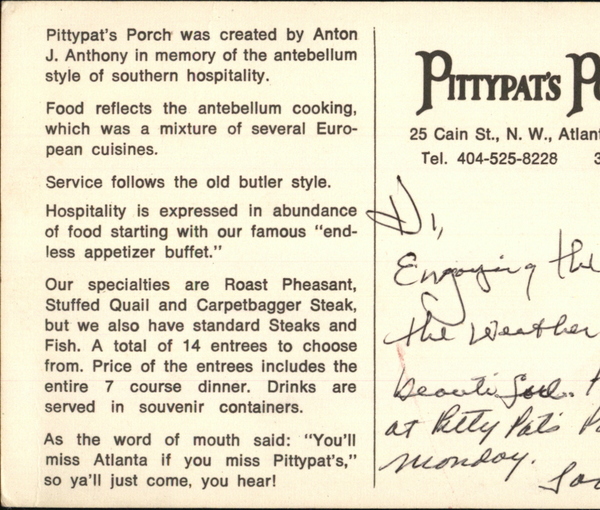 Pittypat's Porch was created by Anton
J. Anthony in memory of the antebellum
style of southern hospitality.
Food reflects the antebellum cooking,
which was a mixture of several Euro-
pean cuisines.
Service follows the old butler style.
Hospitality is expressed in abundance
of food starting with our famous "end-
less appetizer buffet."
Our specialties are Roast Pheasant,
Stuffed Quail and Carpetbagger Steak,
but we also have standard Steaks and
Fish. A total of 14 entrees to choose
from. Price of the entrees includes the
entire 7 course dinner. Drinks are
served in souvenir containers.
As the word of mouth said: "You'll
miss Atlanta if you miss Pittypat's,"
so ya'll just come, you hear!
PITTYPAT'S PO
25 Cain St., N. W., Atlant
Tel. 404-525-8228 3
Hi,
Engoying the
the weather
beautiful.
at Pitty Pat's
Monday.